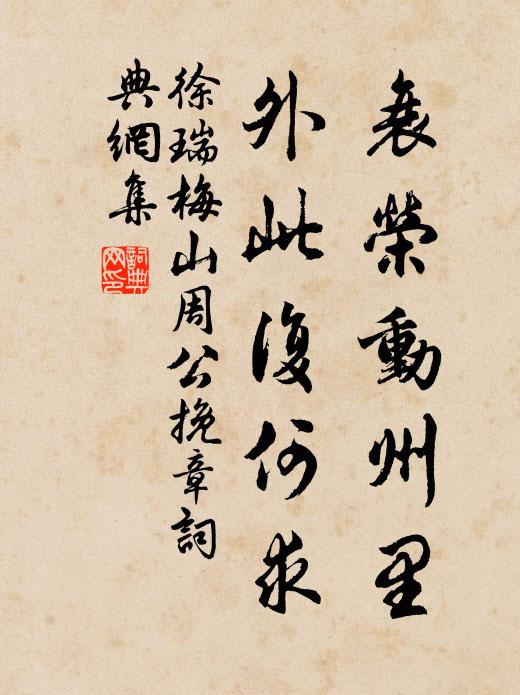 哀榮動州里
外此復何求
徐瑞梅山周公挽章詞
典網集
詞典網印